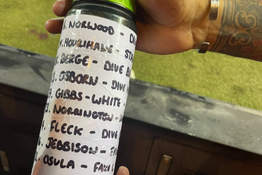 NORWOOD -
HOURIHANE - ST
BERGE - DIVE
OSBORN - DIVE
GIBBS-WHITE -
NORRINGTON -
FLECK - DIVE
JEBBISON - FA
OSULA - FAKE